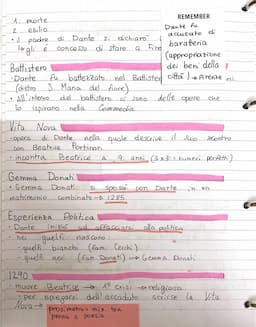 1. morte
2. esilio
Il padre di Dante si dichiarò
gli è concesso di stare a Fire
REMEMBER
Dante fu
accusato di
barateria
(appropriazione
dei beni della
città)
Battistero
Dante fu battezzato nel Battister
(dietro S. Maria del fiore)
All'interno del battistero ci sono delle opere che
lo ispirano nella Commedia
Vita Nova
opera di Dante nella quale descrive il suo incontro
con Beatrice Portinari
incontra Beatrice a 9 anni (3x3 = numeri perfetti)
Gemma Donati
Gemma Donati si sposò con Dante in un
matrimonio combinato → 1285
Esperienza Politica
Dante iniziò ad affacciarsi alla politica
nei quelli nascono:
quelli bianchi (fam. Cerchi)
quelli neri (fam. Donati) → Gemma Donati
1290
muore Beatrice → 1ª crisi → religiosa
per spiegarsi dell'accaduto scrisse la Vita
Nova →
prosimetro = mix tra
prosa e poesia